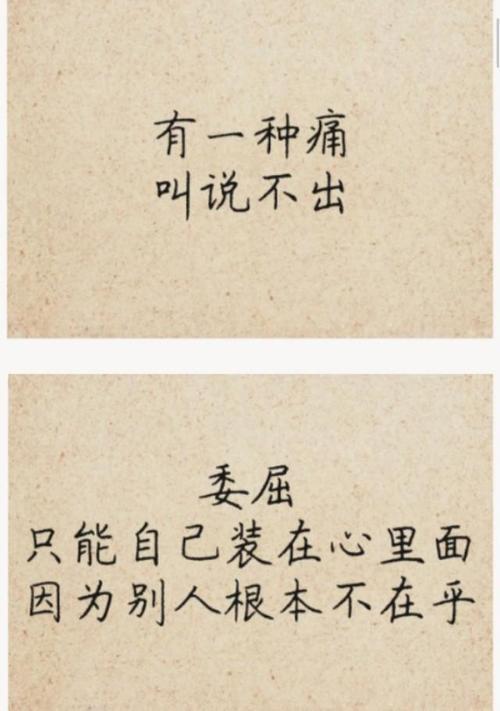 有一种痛
叫说不出
委屈
只能自己装在心里面
因为别人根本不在乎